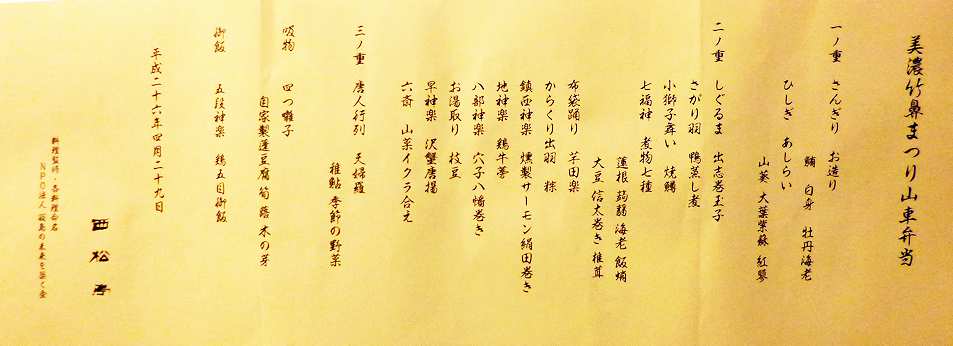 美濃竹鼻まつり山車弁当
一ノ重 さんぎり お造り
鮪 白身 牡丹海老
ひしぎ あしらい
山葵 大葉紫蘇 紅蓼
二ノ重 しぐるま 出志巻玉子
さがり羽 鴨蒸し煮
小獅子舞い 焼鱒
七福神 煮物七種
蓮根 蒟蒻 海老 飯蛸
大豆 信太巻き 椎茸
布袋踊り 芋田楽
からくり出羽 粽
鎮西神楽 燻製サーモン絹田巻き
地神楽 鶏牛蒡
八部神楽 穴子八幡巻き
お湯取り 枝豆
早神楽 沢蟹唐揚
六斎 山菜イクラ合え
三ノ重 唐人行列 天婦羅
稚鮎 季節の野菜
吸物 四つ囃子
自家製蓮豆腐 筍 蕗 木の芽
御飯 五段神楽 鶏五目御飯
平成二十六年四月二十九日
料理監修・各料理命名
NPO法人 の未来を築く会
西松